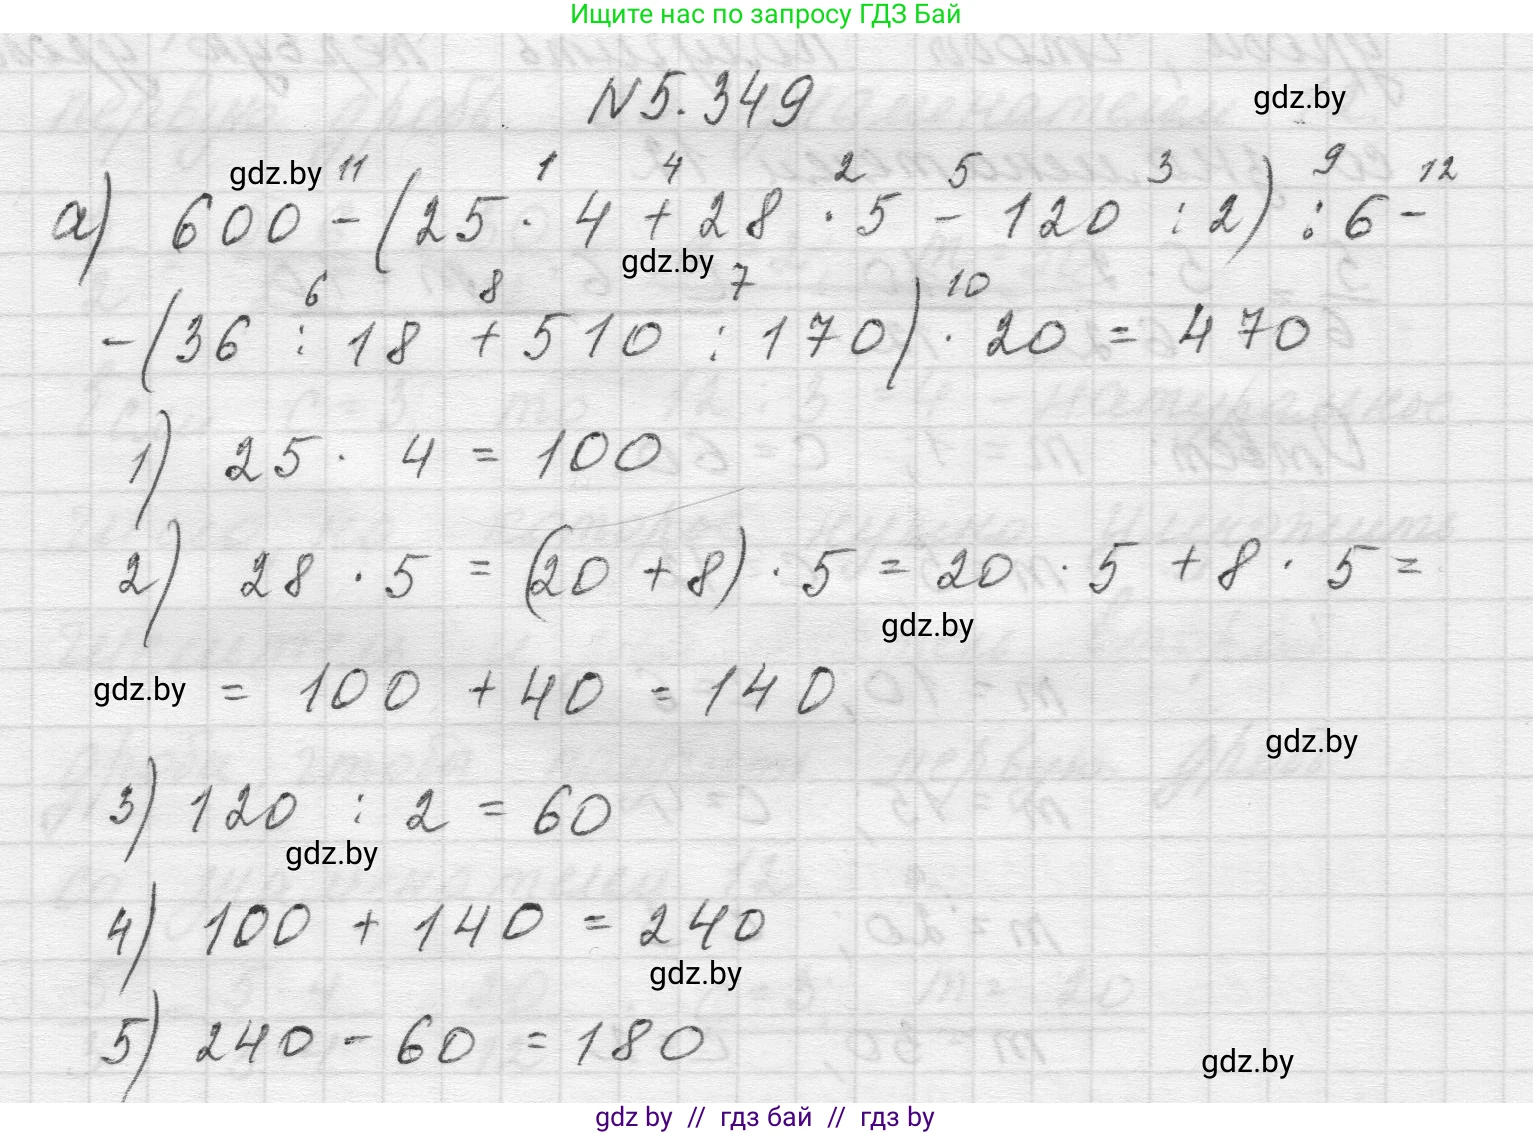 Ищите нас по запросу ГДЗ Бай
N 5.349
gdz.by
gdz.by
11 1 4 2 5 3 9 12
а) 600 - (25 · 4 + 28 · 5 - 120 : 2) : 6 -
gdz.by
6 8 7 10
- (36 : 18 + 510 : 170) · 20 = 470
1) 25 · 4 = 100
2) 28 · 5 = (20 + 8) · 5 = 20 · 5 + 8 · 5 =
gdz.by
gdz.by
= 100 + 40 = 140
gdz.by
3) 120 : 2 = 60
gdz.by
4) 100 + 140 = 240
gdz.by
5) 240 - 60 = 180
gdz.by
gdz by // гдз бай // гдз by